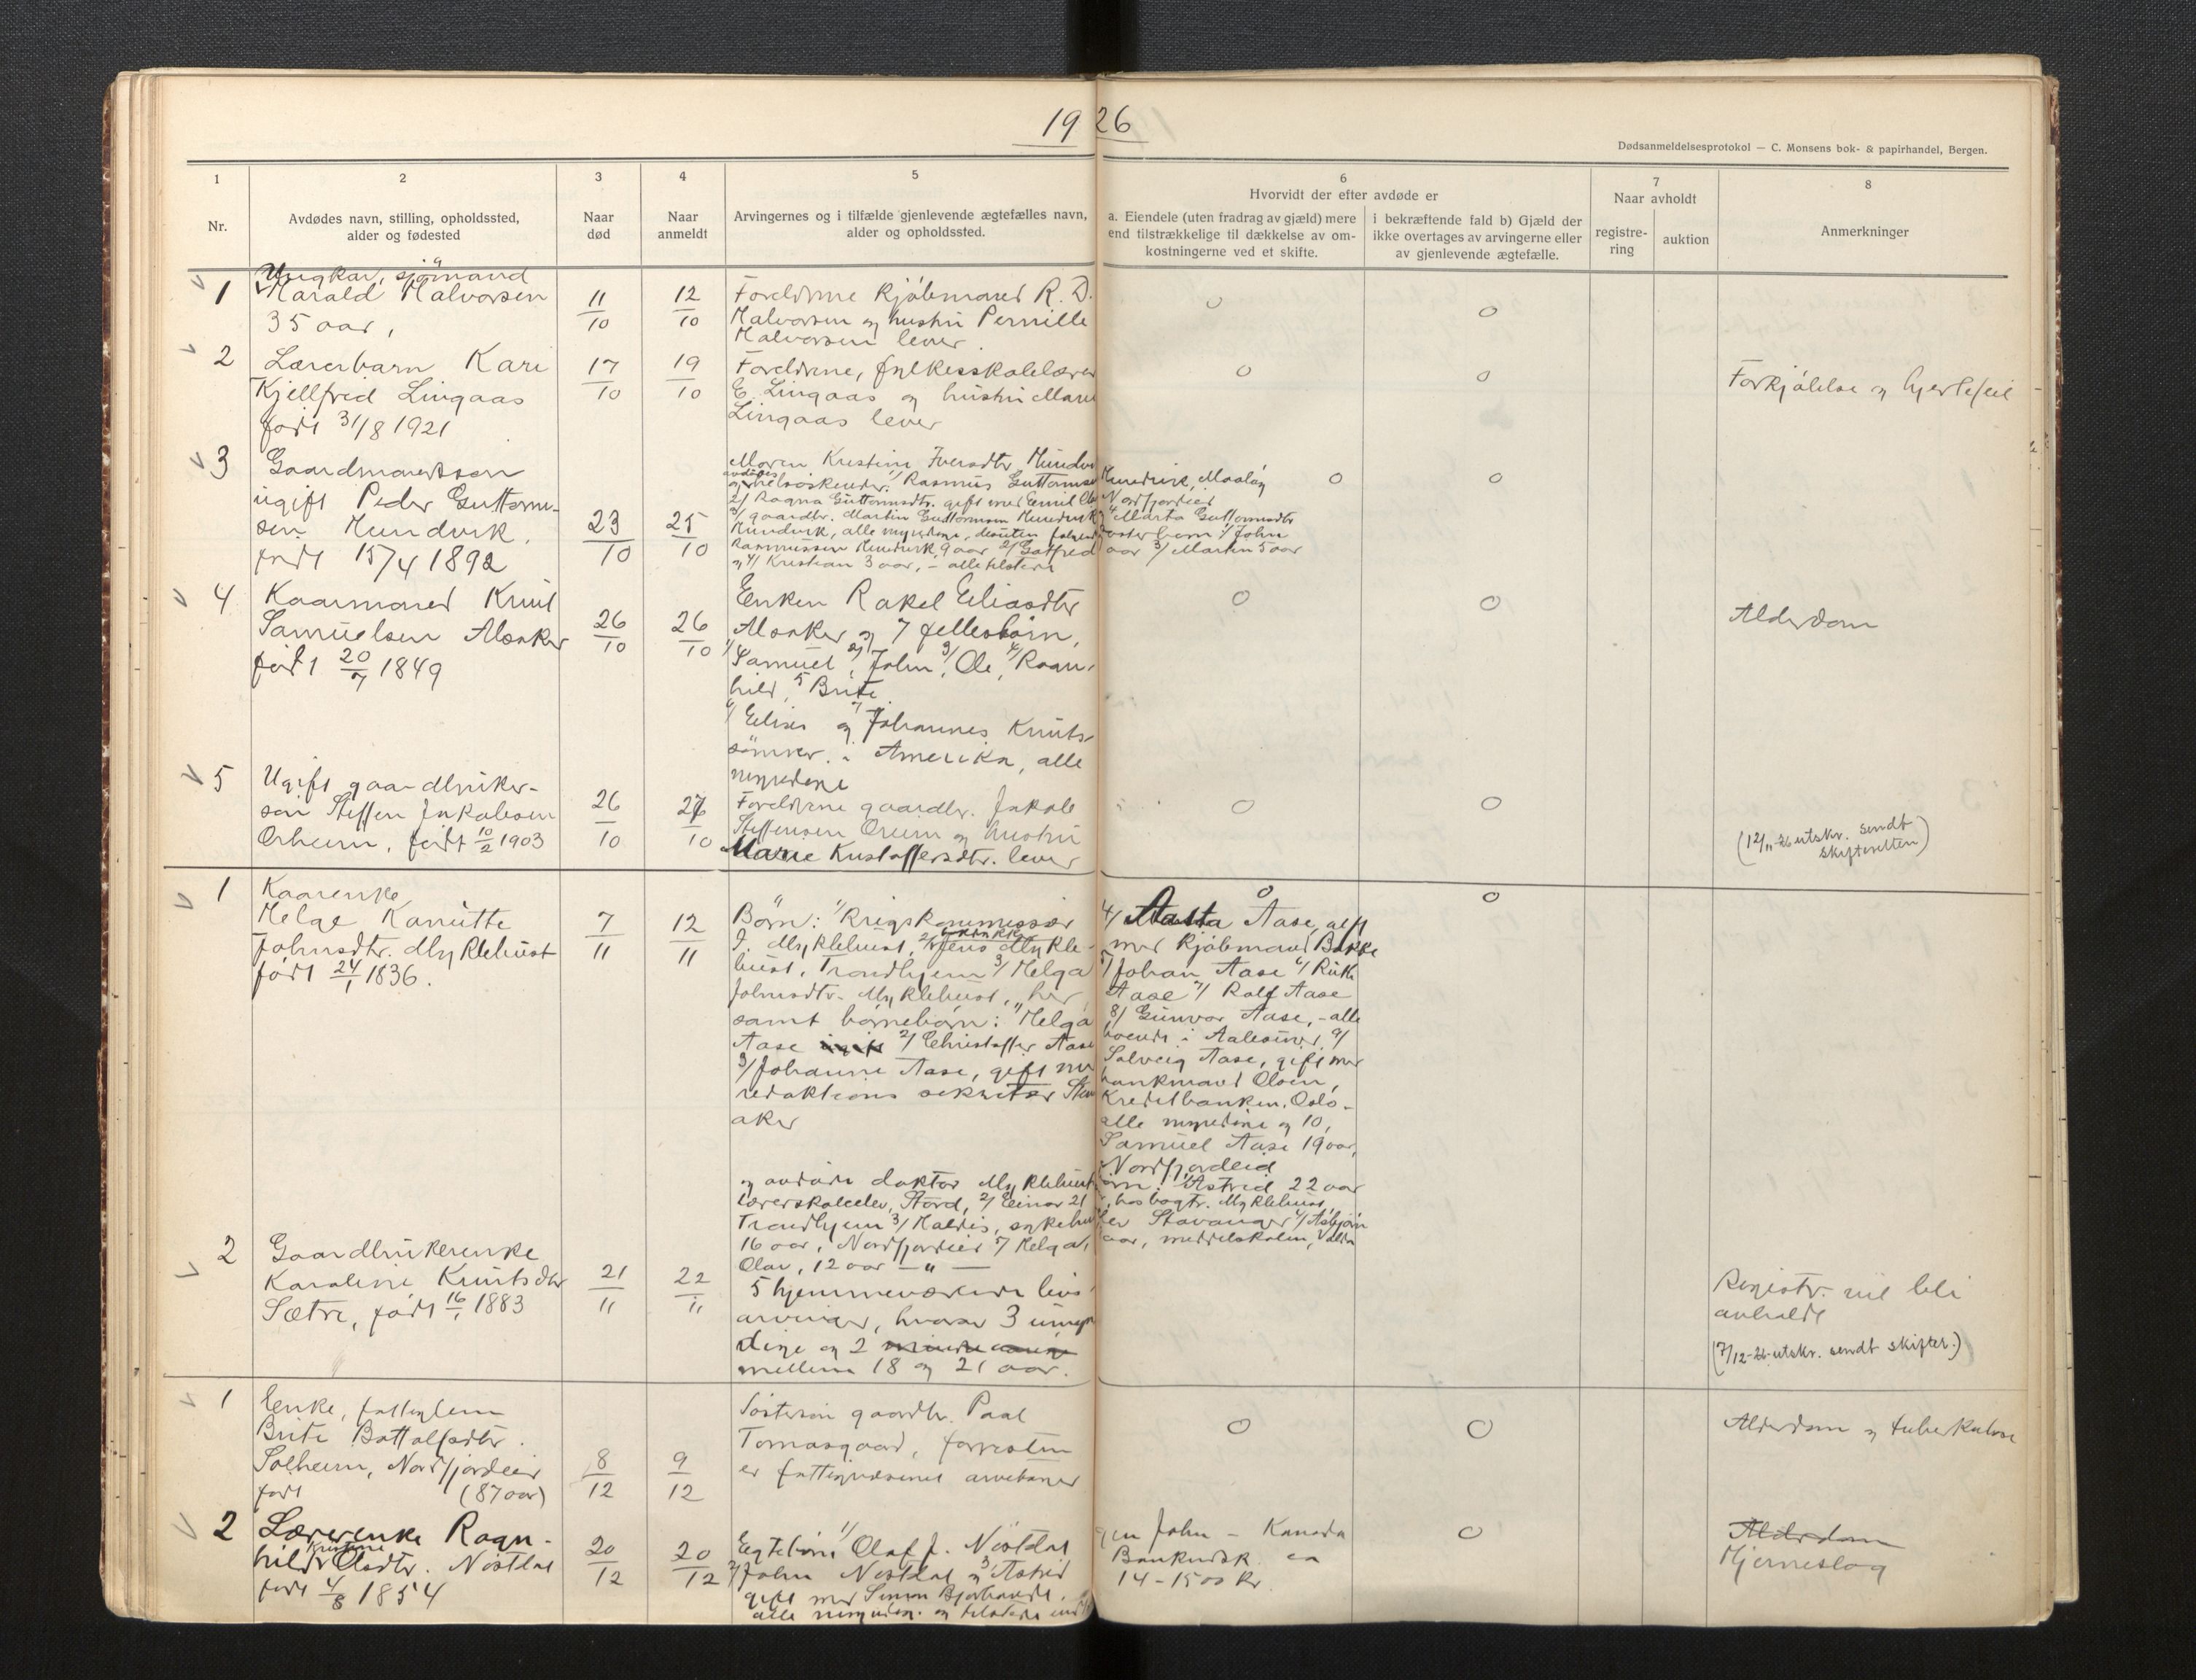 19 26
Dødsanmeldelsesprotokol — C. Monsens bok- & papirhandel, Bergen.
1
Nr.
2
Avdødes navn, stilling, opholdssted,
alder og fødested
3
Naar
død
4
Naar
anmeldt
5
Arvingernes og i tilfælde gjenlevende ægtefælles navn,
alder og opholdssted.
6
Hvorvidt der efter avdøde er
a. Eiendele (uten fradrag av gjæld) mere
end tilstrækkelige til dækkelse av om-
kostningerne ved et skifte.
i bekræftende fald b) Gjæld der
ikke overtages av arvingerne eller
av gjenlevende ægtefælle.
7
Naar avholdt
registre-
ring
auktion
8
Anmerkninger
1
Ungkar, sjømand
Harald Halvorsen
35 aar,
11/10
12/10
Forældrene kjøbmand R. D.
Halvorsen og hustru Pernille
Halvorsen lever
0
0
2
Lærerbarn Kari
Kjellfrid Lingaas
født 31/8 1921
17/10
19/10
Forældrene, fylkesskolelærer
E. Lingaas og hustru
Lingaas lever
0
0
Forkjølelse og hjertefeil
3
Gaardmandssøn
ugift Peder Guttorm-
sen Hundvik,
født 15/4 1892
23/10
25/10
Moren Kristine Iversdtr.
avdødes
og helsøskende: 1/ Rasmus Guttormsen Hundvik, Maaløy
2/ Ragna Guttormsdtr. gift med Emil Nordfjordeid
3/ gaardbr. Martin Guttormsen Hundvik 4 Marta Guttormsdtr
Hundvik, alle myndige, desuten 1/ John
Rasmussen Hundvik, 9 aar 2/ Gotfred aar 3/ Martin 5 aar
og 4/ Kristian 3 aar, - alle tilstede
0
0
4
Kaarmand Knut
Samuelsen
født 20/7 1849
26/10
26/10
Enken Rakel Eliasdtr
og 7 fellesbørn,
1/ Samuel, 2/ John, 3/ Ole, 4/ Ragn-
hild, 5 Brite
6/ Elias og 7/ Johannes Knuts-
sønner i Amerika, alle
myndige
0
0
Alderdom
5
Ugift gaardbruker-
søn Steffen Jakobsen
Orheim, født 10/2 1903
26/10
27/10
Forældrene gaardbr. Jakob
Steffensen Oreim og hustru
Marie Kristoffersdtr. lever
0
0
(12/11-26 utskr. sendt
skifteretten)
1
Kaarenke
Helge Kanutte
Johnsdtr. Myklebust
født 24/1 1836.
7/11
12/11
Børn: 1/ Krigskommissær
J. Myklebust, 2/ Jens Mykle-
bust, Trondhjem 3/ Helga
Johnsdtr. Myklebust, her
samt børnebørn: 1/ Helga
Aase 2/ Christoffer Aase
3/ Johanne Aase, gift med
redaktions sekretær
aker
4/ Aasta Aase, gift
med kjøbmand Bakke
5/ Johan Aase 6/ Ruth
Aase 7/ Rolf Aase
8/ Gunvor Aase, - alle
boende i Aalesund, 9/
Solveig Aase, gift med
bankmand Olsen,
Kreditbanken, Oslo -
alle myndige og 10,
Samuel Aase 19 aar,
Nordfjordeid
0
0
og avdøde doktor Myklebust børn: Astrid 22 aar
lærerskoleelev, Stord, 2/ Einar 21 , hos bogtr. Myklebust,
Trondhjem 3/ Haldis, Stavanger 4/ Asbjørn
16 aar, Nordfjordeid 5/ Helga, aar, middelskolen, Volda
Olav, 12 aar — " —
2
Gaardbrukerenke
Karoline Knutsdtr
Sætre, født 16/1 1883
21/11
22/11
5 hjemmeværende livs-
arvinger, hvorav 3 umyn-
dige og 2
mellem 18 og 21 aar.
Registr. vil bli
avholdt
(7/12-26 utskr. sendt skifter.)
1
Enke, fattiglem
Brite Bottolfsdtr.
Solheim, Nordfjordeid
født (87 aar)
8/12
9/12
Søstersøn gaardbr. Paal
Tomasgaard, forresten
er fattigvæsenet
0
0
Alderdom og tuberkulose
2
Lærerenke Ragn-
hild Kristine Olsdtr. Nøstdal
født 4/8 1854
20/12
20/12
Egtebørn 1/ Olaf J. Nøstdal
2/ John Nøstdal og 3/ Astrid
gift med Simon
alle myndige og tilstede
John - Kanada
Bankindsk. ca
14-1500 kr.
0
Alderdom
Hjerneslag